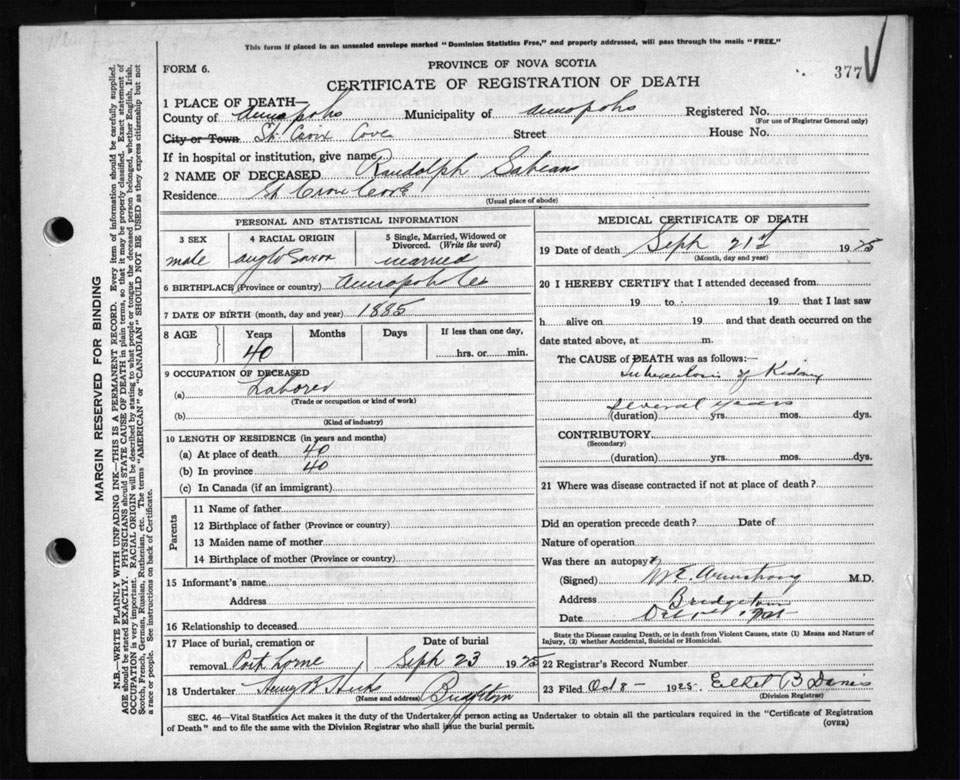 This form if placed in an unsealed envelope marked "Dominion Statistics Free," and properly addressed, will pass through the mails "FREE."
FORM 6.
PROVINCE OF NOVA SCOTIA
377
CERTIFICATE OF REGISTRATION OF DEATH
1 PLACE OF DEATH—
County of Annapolis Municipality of Annapolis Registered No.
(For use of Registrar General only)
City or Town St. Croix Cove Street House No.
If in hospital or institution, give name
2 NAME OF DECEASED Randolph Sabeans
Residence St Croix Cove
(Usual place of abode)
PERSONAL AND STATISTICAL INFORMATION
3 SEX 4 RACIAL ORIGIN 5 Single, Married, Widowed or Divorced. (Write the word)
male anglo Saxon married
6 BIRTHPLACE (Province or country) Annapolis Co
7 DATE OF BIRTH (month, day and year) 1885
8 AGE Years Months Days If less than one day,
40 hrs. or min.
9 OCCUPATION OF DECEASED
(a) Laborer
(Trade or occupation or kind of work)
(b)
(Kind of industry)
10 LENGTH OF RESIDENCE (in years and months)
(a) At place of death 40
(b) In province 40
(c) In Canada (if an immigrant)
Parents
11 Name of father
12 Birthplace of father (Province or country)
13 Maiden name of mother
14 Birthplace of mother (Province or country)
15 Informant's name
Address
16 Relationship to deceased
17 Place of burial, cremation or Date of burial
removal Port Lorne Sept 23 1925
18 Undertaker
(Name and address)
MEDICAL CERTIFICATE OF DEATH
19 Date of death Sept 21st 1925
(Month, day and year)
20 I HEREBY CERTIFY that I attended deceased from
19 to 19 that I last saw
h alive on 19 and that death occurred on
date stated above, at m.
The CAUSE of DEATH was as follows:—
Tuberculosis of Kidney
several years
(duration) yrs. mos. dys.
CONTRIBUTORY
(Secondary)
(duration) yrs. mos. dys.
21 Where was disease contracted if not at place of death?
Did an operation precede death? Date of
Nature of operation
Was there an autopsy?
(Signed) M E. Armstrong M.D.
Address Bridgetown
Date
State the Disease causing Death, or in death from Violent Causes, state (1) Means and Nature of
Injury, (2) whether Accidental, Suicidal or Homicidal.
22 Registrar's Record Number
23 Filed Oct 8 — 1925 Ethel B Danis
(Division Registrar)
SEC. 46—Vital Statistics Act makes it the duty of the Undertaker or person acting as Undertaker to obtain all the particulars required in the "Certificate of Registration
of Death" and to file the same with the Division Registrar who shall issue the burial permit.
(OVER)
MARGIN RESERVED FOR BINDING
N.B.—WRITE PLAINLY WITH UNFADING INK—THIS IS A PERMANENT RECORD. Every item of information should be carefully supplied.
AGE should be stated EXACTLY. PHYSICIANS should STATE CAUSE OF DEATH in plain terms, so that it may be properly classified. Exact statement of
OCCUPATION is very important. RACIAL ORIGIN will be described by stating to what people or tongue the deceased person belonged, whether English, Irish,
Scotch, French, German, Russian, Ruthenian, etc. The terms "AMERICAN" or "CANADIAN" SHOULD NOT BE USED as they express citizenship but not
a race or people. See instructions on back of Certificate.